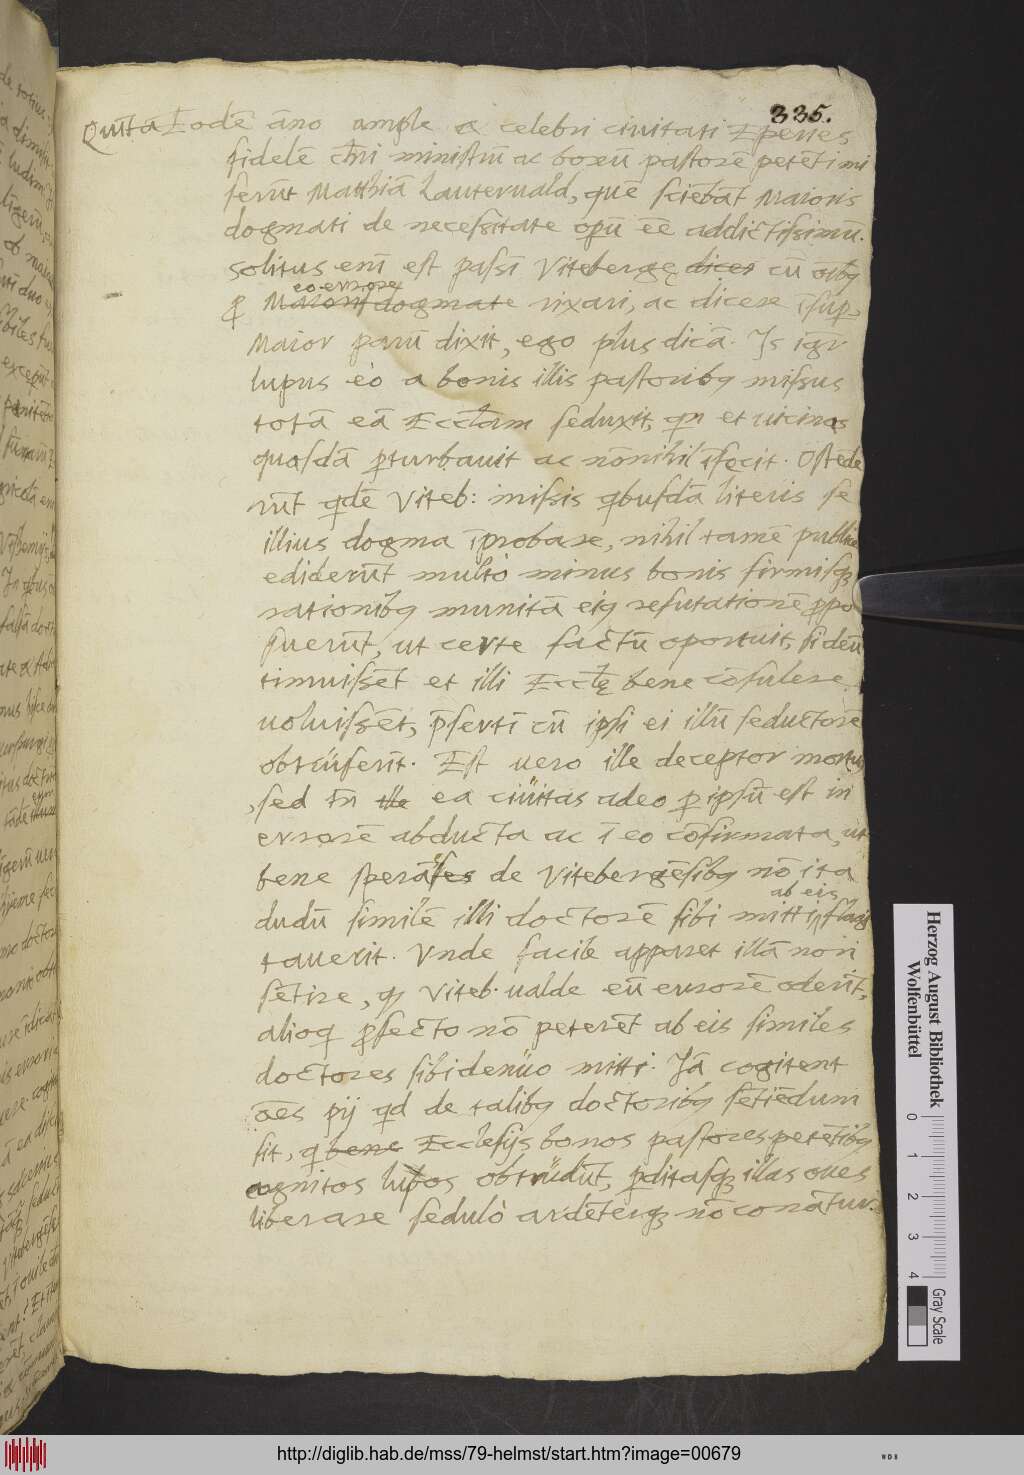 335.
Quīta Eodē āno ample & celebri civitati Eperies
fidelē chri ministrū ac bonū pastorē petēti mi
serūt Matthiā Lauterwald, quē sciebāt Maioris
dogmati de necessitate opū eē addictissimū.
solitus enī est passī Vitebergę dicer cū oībq
eo errore
p Maioris dogmate rixari, ac dicere
Maior parū dixit, ego plus dicā. Is igr
lupus eò a bonis illis pastoribq missus
totā eā Eccłam seduxit, qn et uicinas
quasdā pturbavit ac nōnihil īfecit. Ostēde
rūt qdē Viteb: missis qbusdā literis se
illius dogma īprobare, nihil tamē publice
ediderūt multò minus bonis firmisq
rationibq munitā eiq refutationē ppo
suerūt, ut certe factū oportuit, si deū
timuissēt et illi Eccłę bene cōsulere
uoluissēt, p̄sertī cū ipsi ei illū seductorē
obtrūserīt. Est uero ille deceptor mortuq
, sed tn̄ ille ea civitas adeo p ipsū est in
errorē abducta ac ī eo cōfirmata, ut
bene sperā de Vitebergēsibq nō ita
ab eis
dudū similē illi doctorē sibi mitti flagi
taverit. Unde facile apparet illā non
sētire, q Viteb. ualde eū errorē oderīt,
alioq pfecto nō peterēt ab eis similes
doctores sibi denuo mitti. Iā cogitent
oēs pij qd de talibq doctoribq sētiēdum
sit, q bene Ecclesijs bonos pastores petētibq
cognitos lupos obtrudūt, pditasq illas oues
liberare sedulò ardēterq nō conātur.
Herzog August Bibliothek
Wolfenbüttel
0 1 2 3 4
Gray Scale
http://diglib.hab.de/mss/79-helmst/start.htm?image=00679